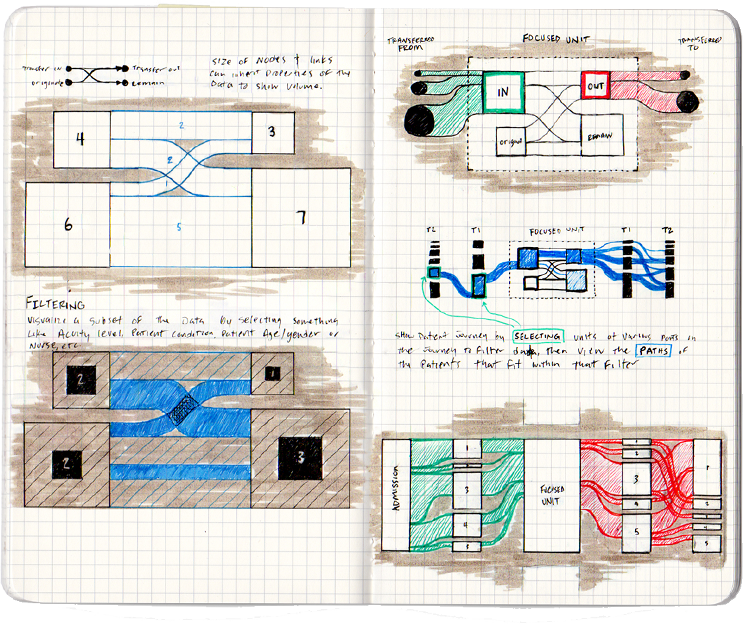 Transfer in Transfer out
originate Remain
Size of Nodes & links
can inherit properties of the
Data to show volume.
4 2 3
2
1
6 5 7
FILTERING
Visualize a subset of the Data by selecting something
like Acuity level, Patient condition, Patient Age/gender or
Nurse, etc
2 1
2 3
TRANSFERRED
FROM
FOCUSED UNIT
TRANSFERRED
TO
IN OUT
originate REMAIN
T2 T1 FOCUSED UNIT T1 T2
Show Patient Journey by SELECTING units at various points in
the journey to filter data, then view the PATHS of
the Patients that fit within that Filter
ADMISSION
1
3
4
5
FOCUSED
UNIT
1
2
3
4
5
1
2
3
4
5